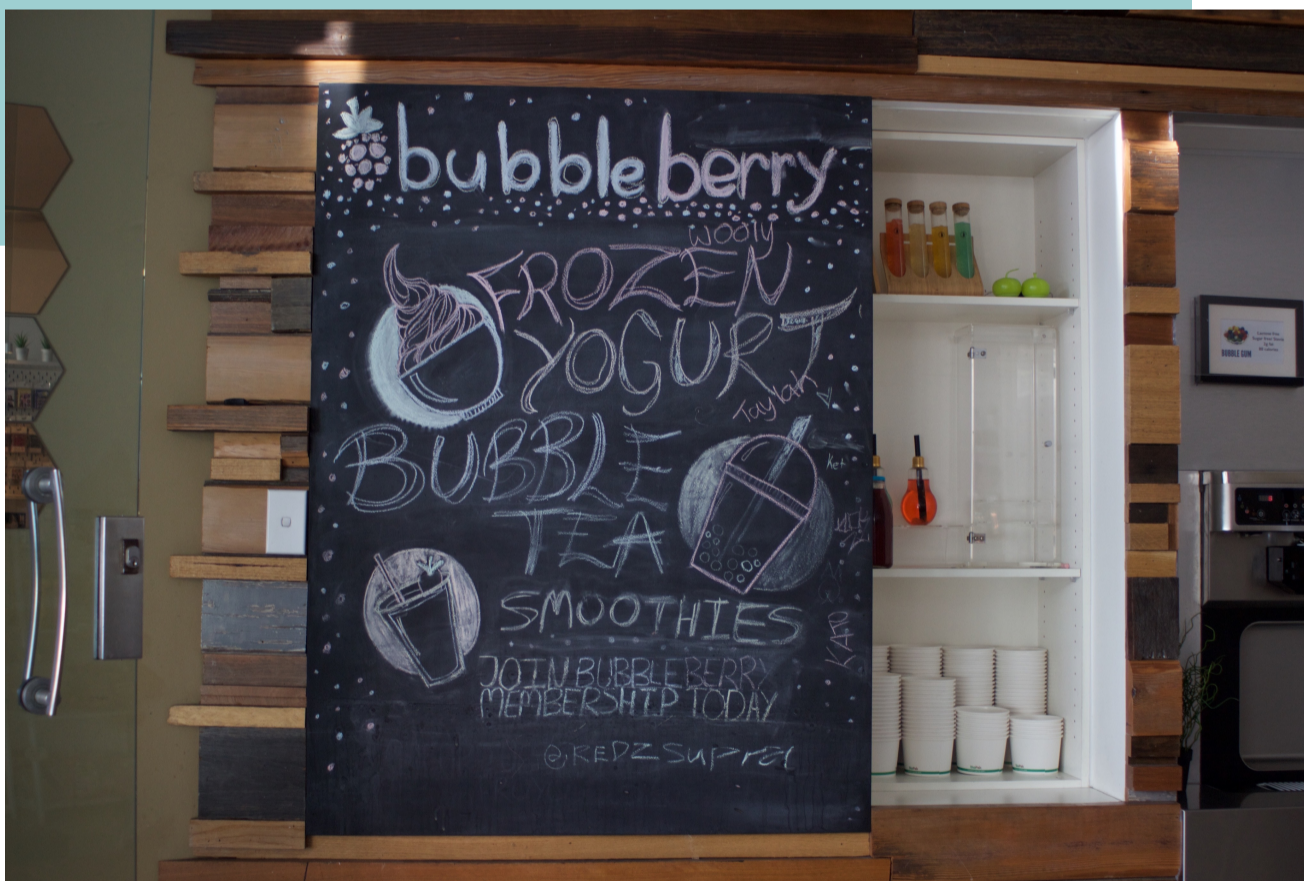 bubbleberry
wooly
FROZEN
YOGURT
Taylah
BUBBLE
TEA
SMOOTHIES
JOIN BUBBLEBERRY
MEMBERSHIP TODAY
@KEDZSupra
BUBBLE GUM